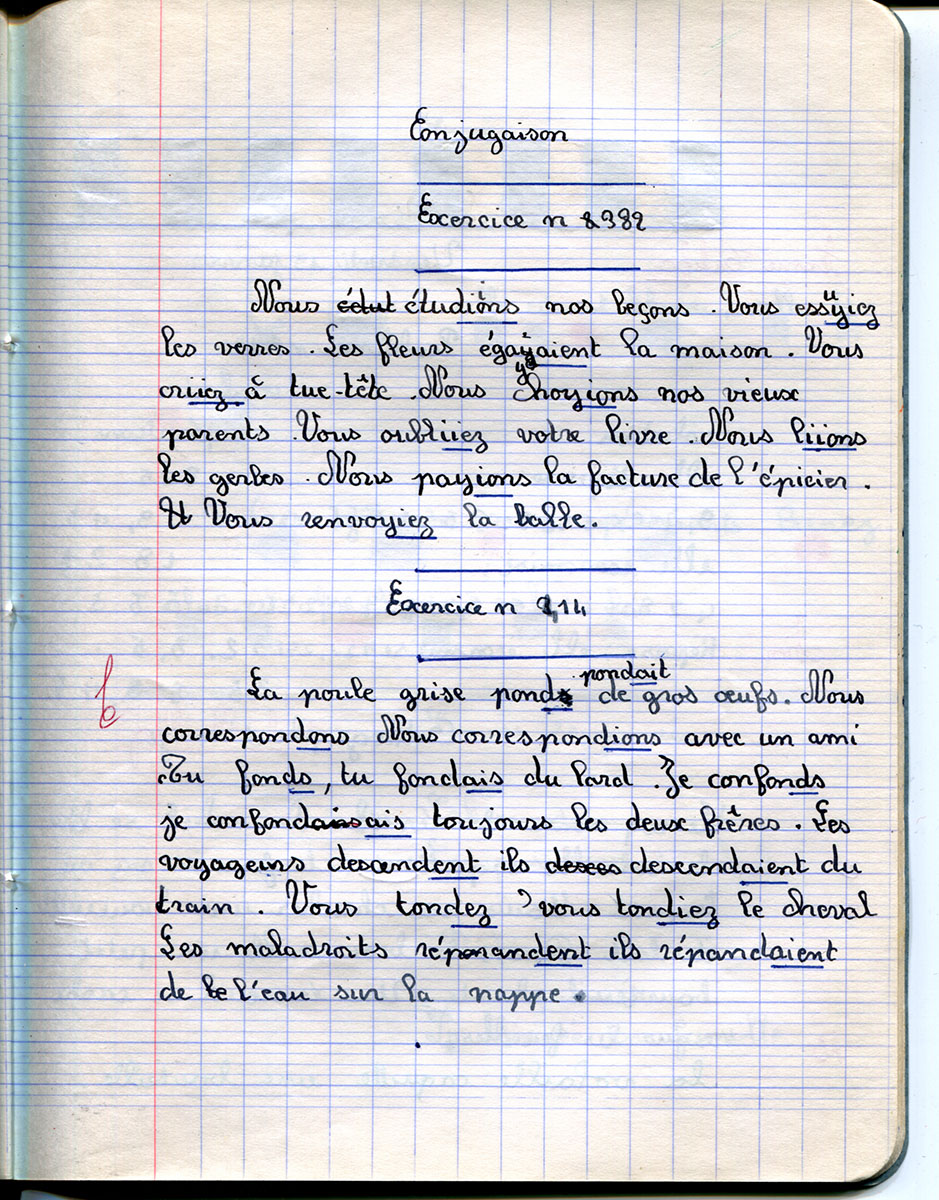 Conjugaison
Excercice n 2382
Nous édut étudiions nos leçons. Vous essuyiez
les verres. Les fleurs égayaient la maison. Vous
criiez à tue-tête. Nous choyions nos vieux
parents. Vous oubliiez votre livre. Nous liions
les gerbes. Nous payions la facture de l'épicier.
Vous renvoyiez la balle.
Excercice n 14
pondait
La poule grise pond de gros œufs. Nous
correspondons Nous correspondions avec un ami
Tu fonds, tu fondais du lard. Je confonds
je confondais ais toujours les deux frères. Les
voyageurs descendent ils desces descendaient du
train. Vous tondez, vous tondiez le cheval
Les maladroits répandent ils répandaient
de le l'eau sur la nappe.